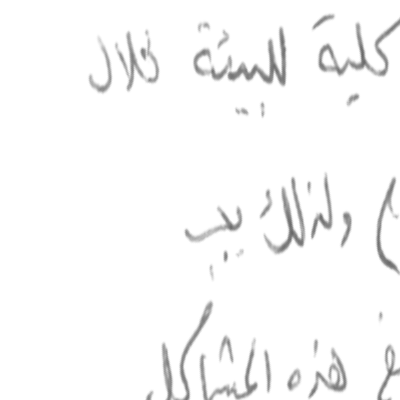 كلية للبيئة خلال
ولذلك يجب
هذه المشاكل